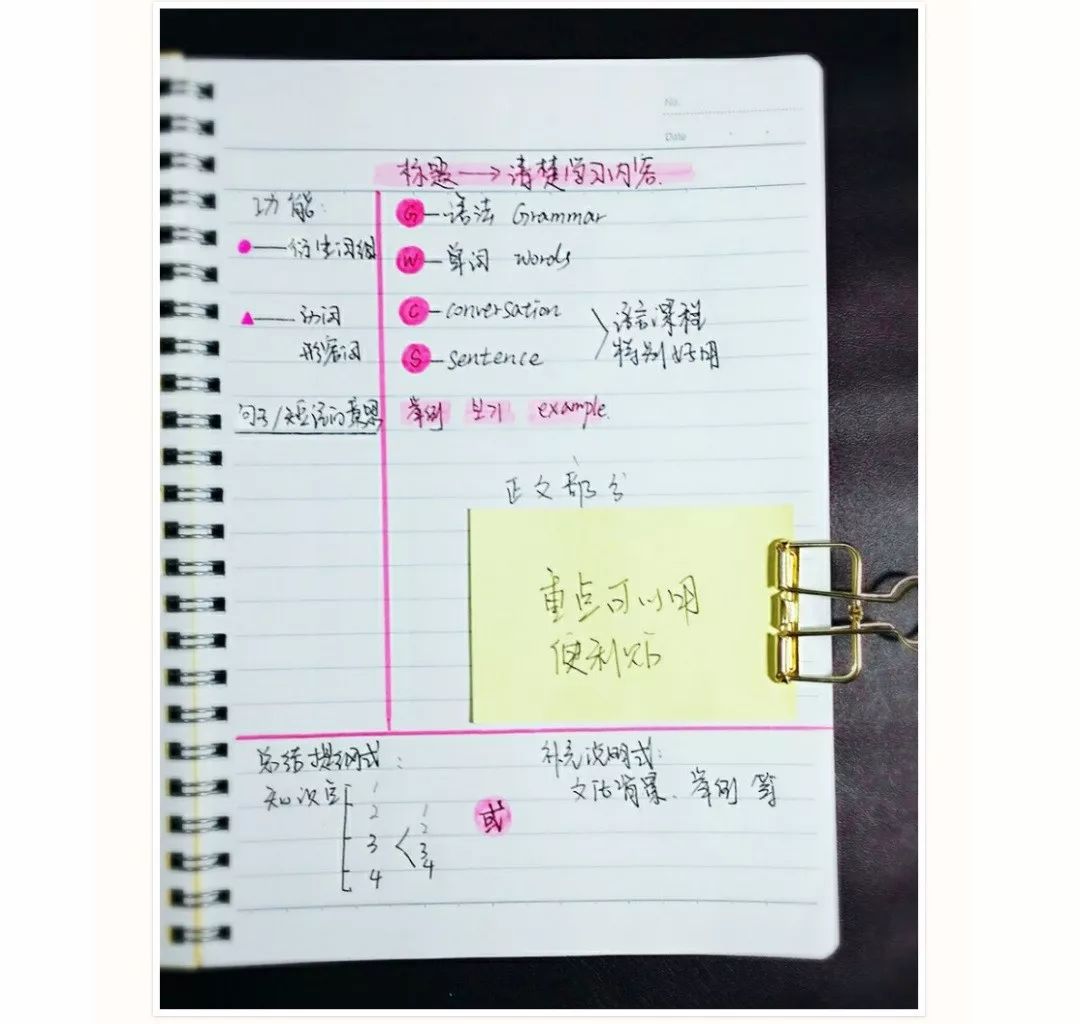 No.
Date
标题→清楚学习内容.
功能:
●—衍生词组
▲—动词
形容词
句子/短语的意思
G—语法 Grammar
W—单词 words
C—conversation
S—sentence
语言课程
特别好用
举例 보기 example.
正文部分
重点可以用
便利贴
总结提纲式:
知识点
1
2
3
4
1
2
3
4
或
补充说明式:
文化背景、举例 等